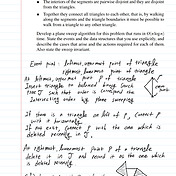 The interiors of the segments are pairwise disjoint and they are disjoint
from the triangles.
Together they connect all triangles to each other, that is, by walking
along the segments and the triangle boundaries it must be possible to
walk from a triangle to any other triangle.
Develop a plane sweep algorithm for this problem that runs in O(n log n)
time. State the events and the data structures that you use explicitly, and
describe the cases that arise and the actions required for each of them.
Also state the sweep invariant.
Event point : leftmost, uppermost point of triangle
rightmost, lowermost point of triangle
At leftmost, uppermost point P of a triangle
Insert triangle in balanced binary search
tree such that order is correspond the
intersecting order by plane sweeping
If there is a triangle on left of P, connect P
with it
If no exist, connect P with the one which is
deleted recently in
At rightmost, lowermost point P of a triangle
delete it in and record it as the one which
is deleted recently.